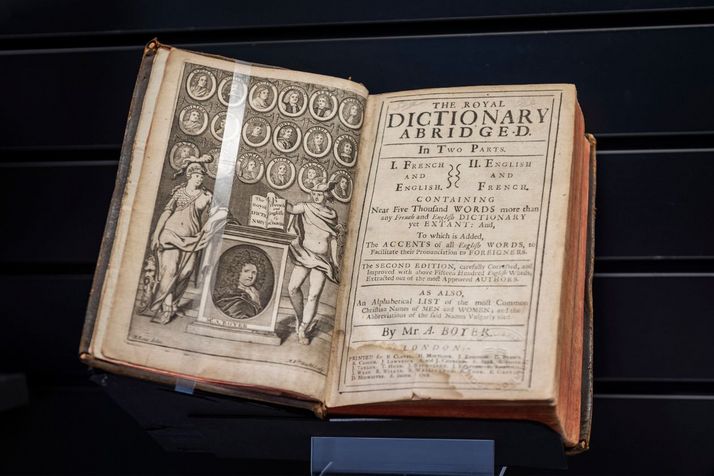 The Royal
DICTION
NARY
A. BOYER
THE ROYAL
DICTIONARY
ABRIDGED.
In Two Parts.
I. French
II. English
AND
AND
English.
French.
CONTAINING
Near Five Thousand WORDS more than
any French and English DICTIONARY
yet EXTANT: And,
To which is Added,
The ACCENTS of all English WORDS, to
Facilitate their Pronunciation to FOREIGNERS.
The SECOND EDITION, carefully Corrected, and
Improved with above Fifteen Hundred English Words,
Extracted out of the most Approved AUTHORS.
AS ALSO,
An Alphabetical LIST of the most Common
Christian Names of MEN and WOMEN; and the
Abbreviations of the said Names Vulgarly used.
By Mr A. BOYER.
LONDON:
PRINTED for